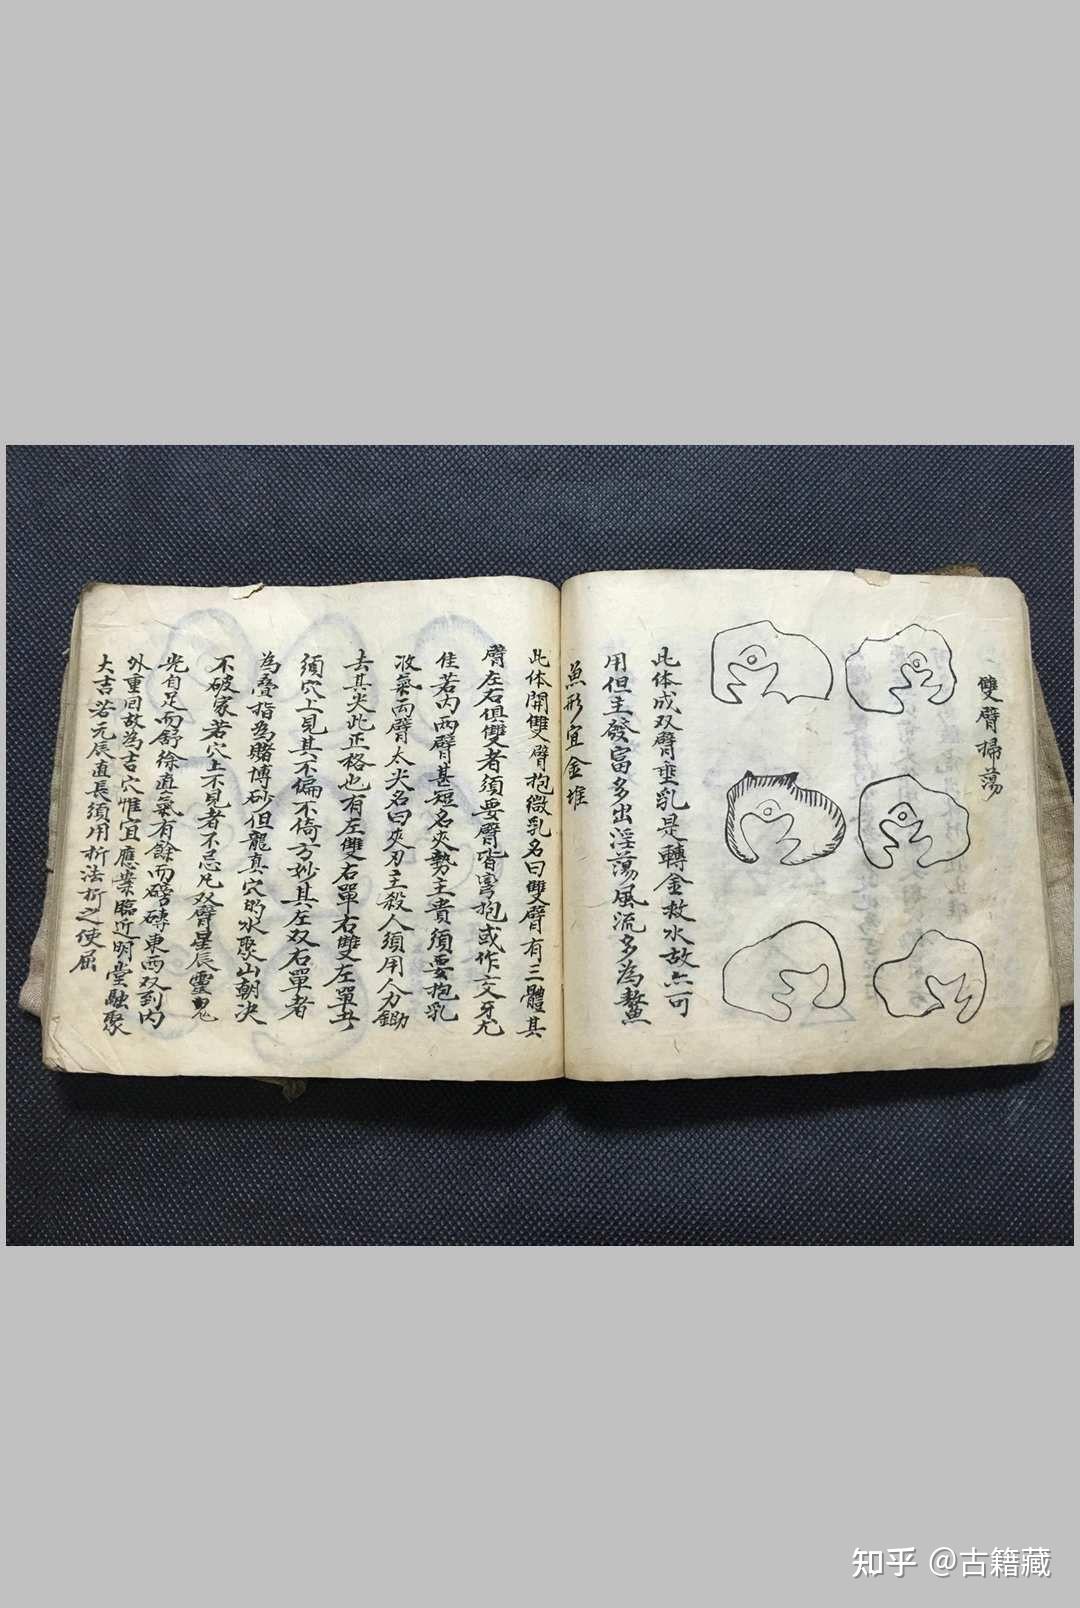 雙臂掃蕩
此体成双臂垂乳是轉金救水故亦可
用但主發富多出淫蕩風流多為鰲
魚形宜金堆
此体開雙臂抱微乳名曰雙臂有三體其
臂左右俱雙者須要臂皆弯抱或作交牙尤
佳若内两臂甚短名夾勢主貴須要抱乳
收氣两臂太尖名曰夾刃主殺人須用人力鋤
去其尖此正格也有左雙右單右雙左單者
須穴上見其不偏不倚方妙其左双右單者
為疊指為賭博砂但龍真穴的水聚山朝决
不破家若穴上不見者不忌凡双臂星辰靈
光自足而舒徐直氣有餘而磅礡東西双到内
外重回故為吉穴惟宜應案臨近明堂融聚
大吉若元辰直長須用折法折之使屈
知乎 @古籍藏